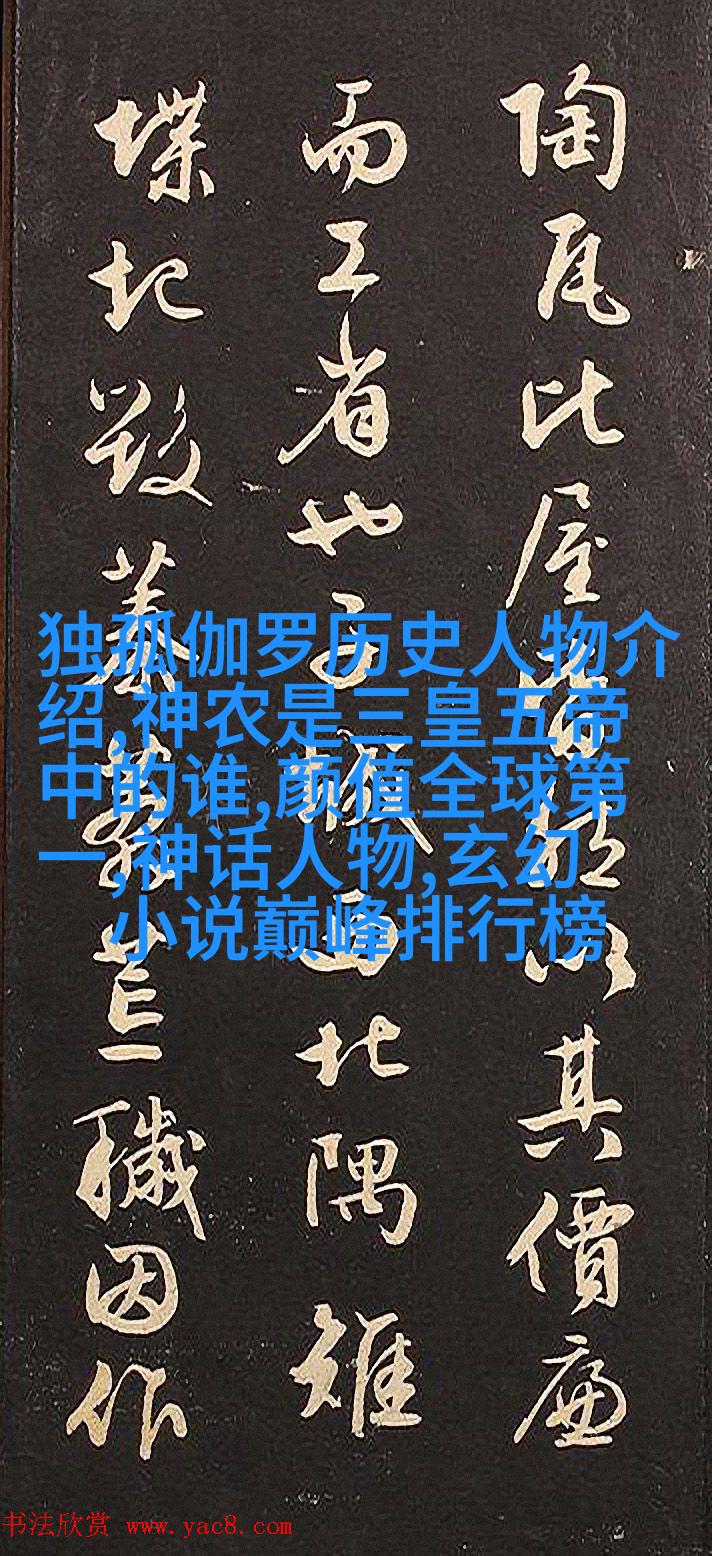 陶瓦比屋以其價廉
而工省也子北隅雉
堞圮毀蓁荒穢因作
独孤伽罗历史人物介
绍,神农是三皇五帝
中的谁,颜值全球第
一,神话人物,玄幻
小说巅峰排行榜
书法欣赏 www.yac8.com